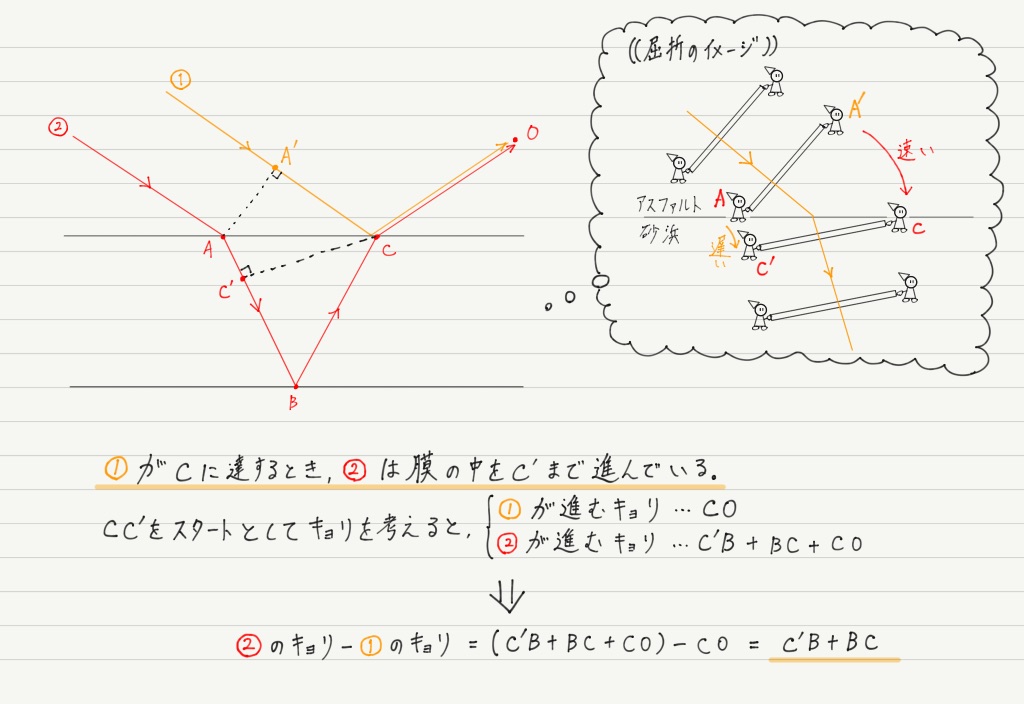 ①
②
A'
O
A
C
C'
B
((屈折のイメージ))
A'
速い
アスファルト
A
砂浜
遅い
C
C'
①がCに達するとき,②は膜の中をC'まで進んでいる.
CC'をスタートとしてキョリを考えると,
①が進むキョリ…CO
②が進むキョリ…C'B+BC+CO
⇓
②のキョリ−①のキョリ=(C'B+BC+CO)−CO = C'B+BC